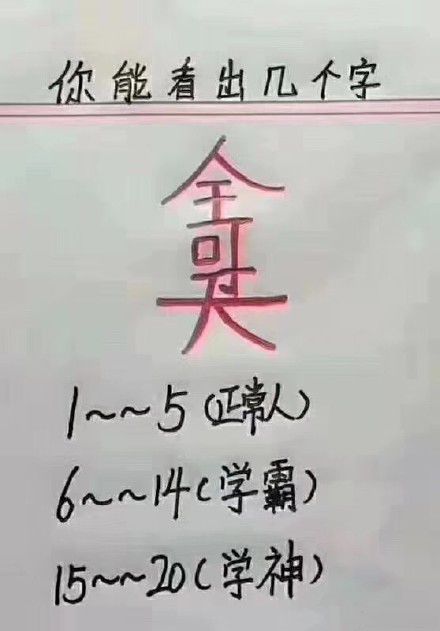 你能看出几个字
1~~5(正常人)
6~~14(学霸)
15~~20(学神)